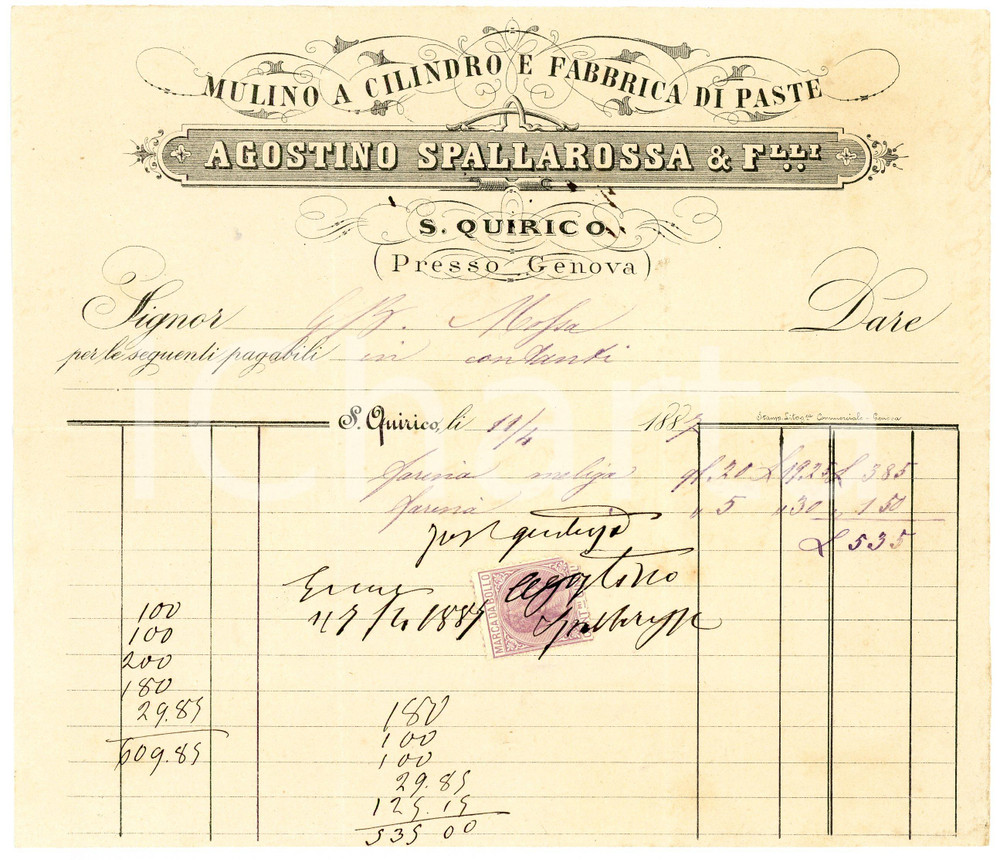 MULINO A CILINDRO E FABBRICA DI PASTE
AGOSTINO SPALLAROSSA & FLLI
S. QUIRICO
(Presso Genova)
Signor G B. Mossa Dare
per le seguenti pagabili in contanti
S. Quirico, li 11/4 1887
Stamp. Litog. Commerciale - Genova
farina meliga ql. 20 £ 19.25 £ 385
farina " 5 " 30 " 150
£ 535
per quietanza
Agostino
17/4 1887 Spallarossa
MARCA DA BOLLO
100
100
200
180
29.85
609.85
180
100
100
29.85
125.15
535 00
iCharta